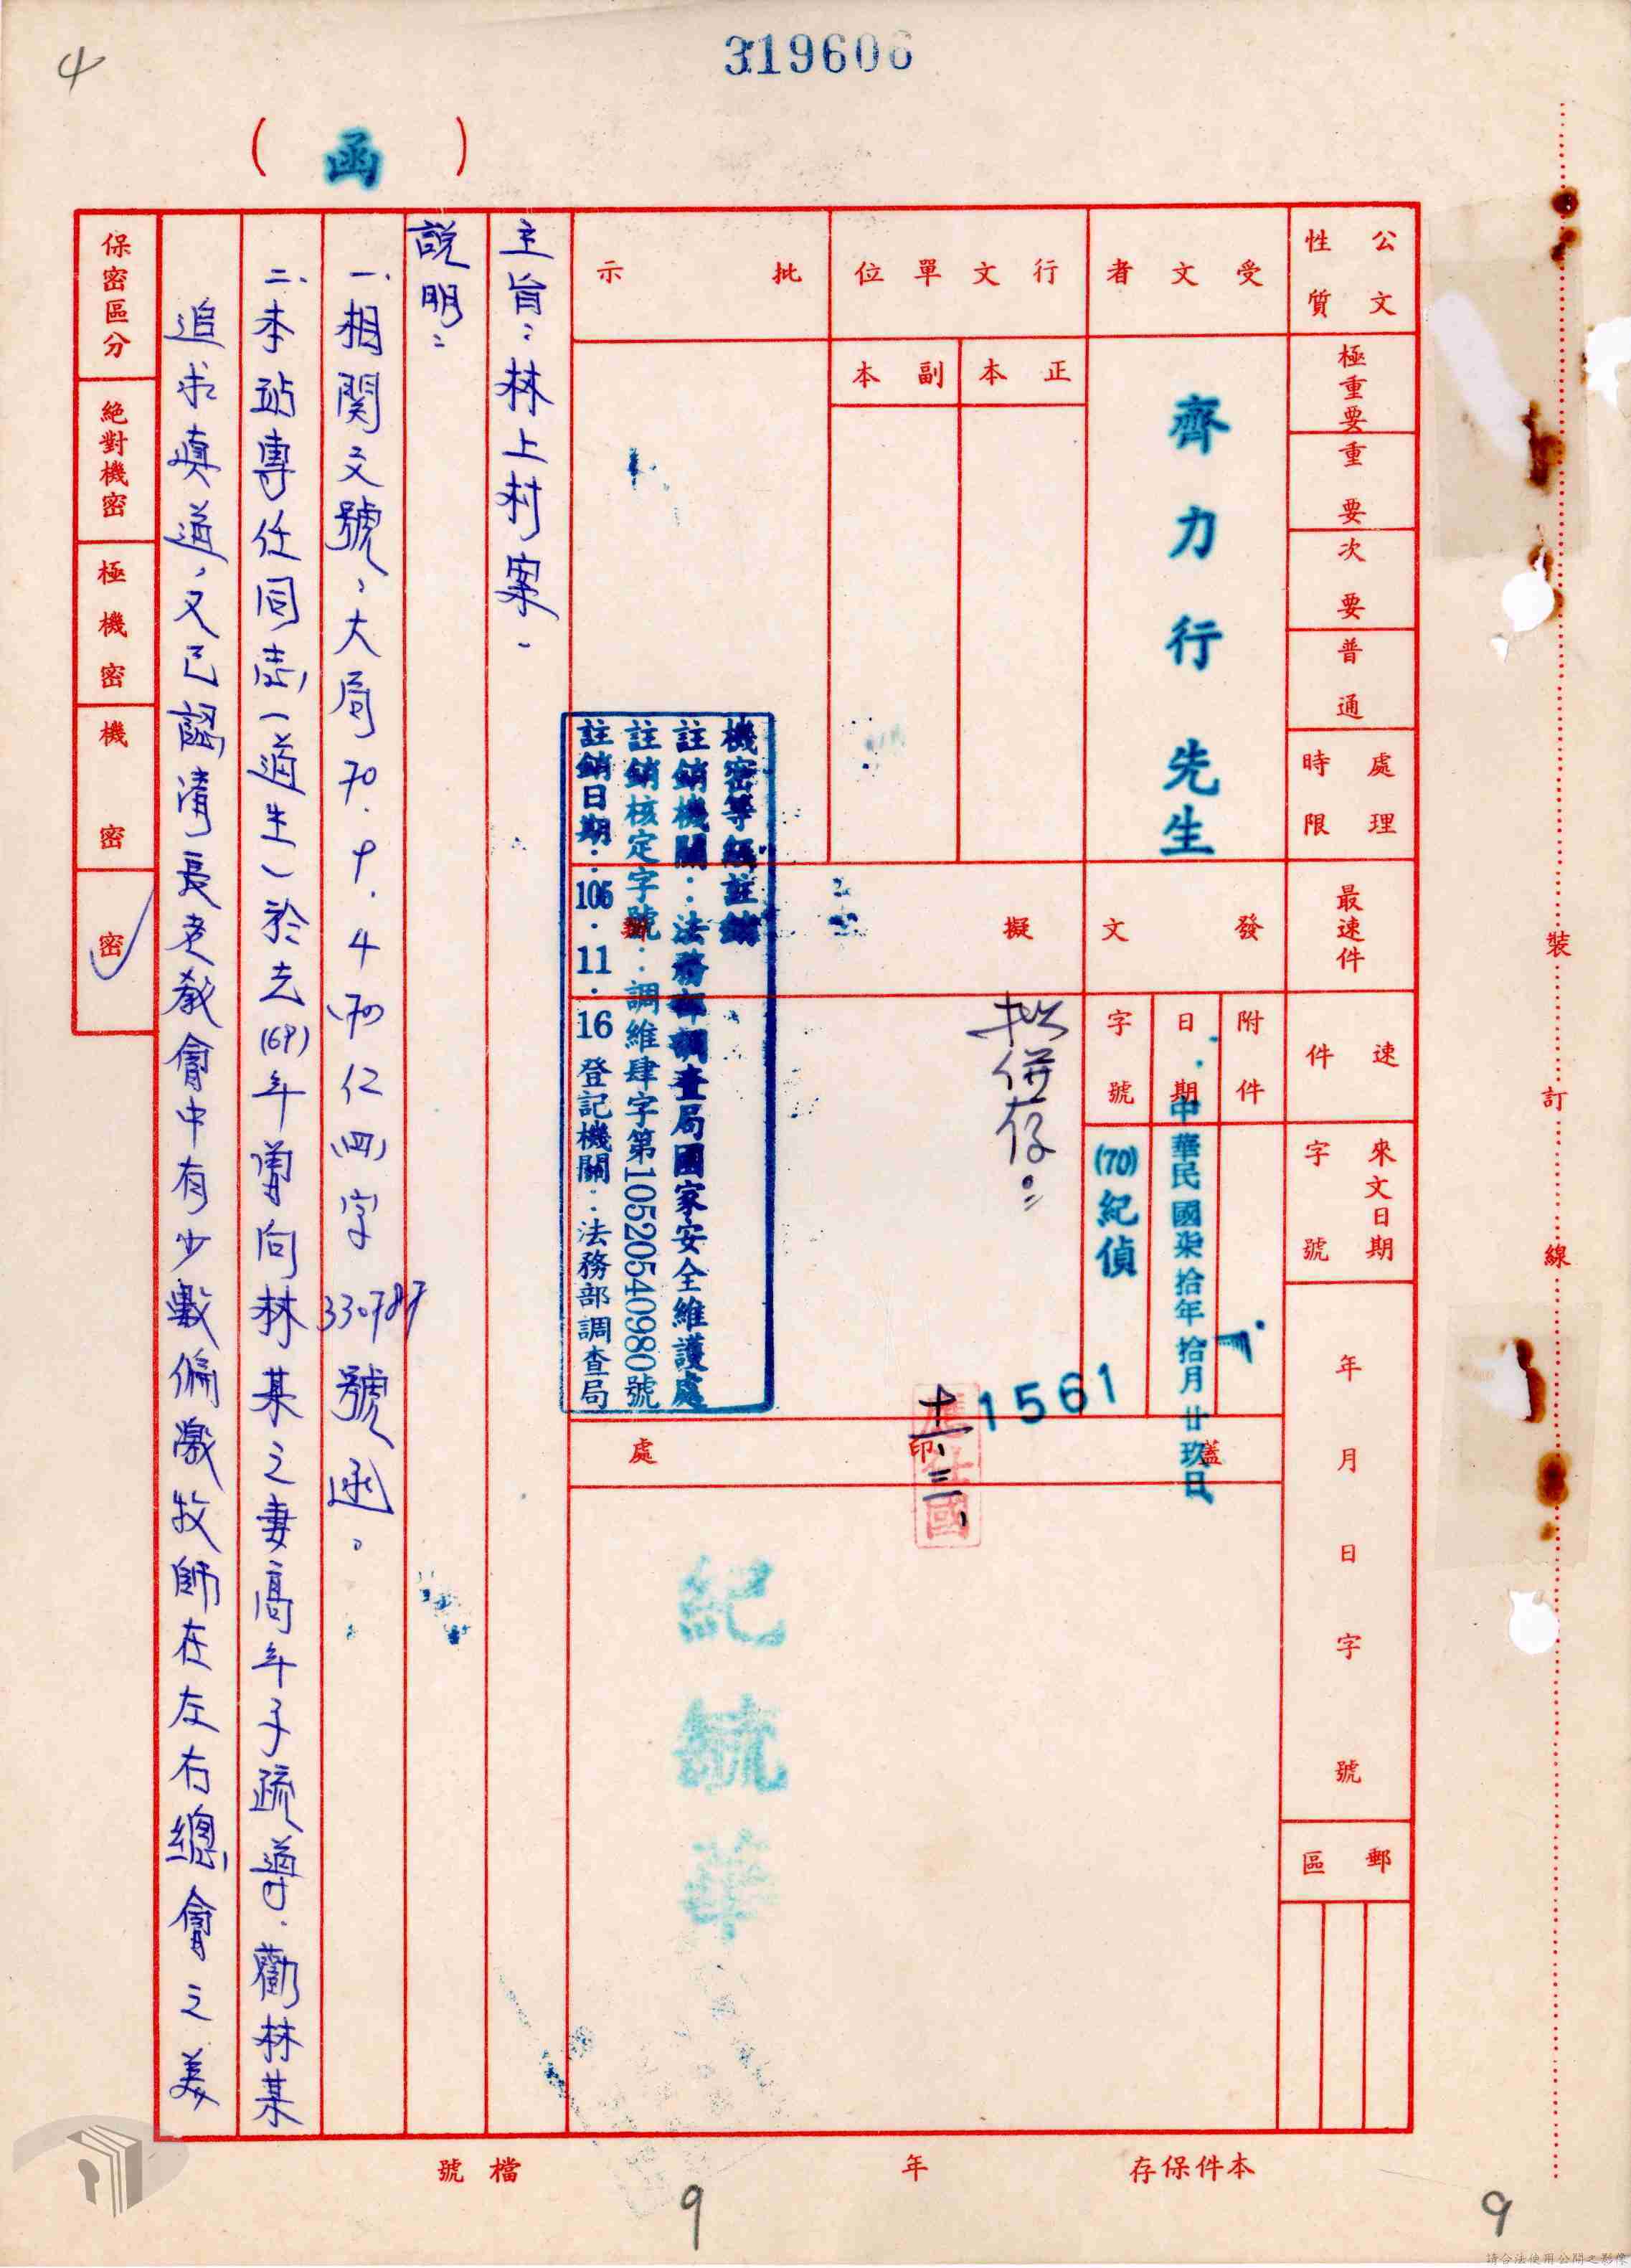 319606
4
（函）
公文性質
極重要
重要
次要
普通
處理時限
最速件
速件
來文日期字號
年月日字號
郵區
受文者
齊力行先生
行文單位
正本
副本
批示
發文
附件
日期
中華民國柒拾年拾月廿玖日
字號
(70)紀偵
1561
擬辦
拟併存：
十一、三、
蓋印處
紀毓華
機密等級註銷
註銷機關：法務部調查局國家安全維護處
註銷核定字號：調維肆字第10520540980號
註銷日期：105．11．16登記機關：法務部調查局
主旨：林上村案。
說明：
一、相関文號：大局70.9.4(70)仁(四)字330787號函。
二、本站專任同志（道生）於去(69)年曾向林某之妻高年子疏導，勸林某
追求真道，又已認清長老教會中有少數偏激牧師在左右總會之美
保密區分
絕對機密
極機密
機密
密
裝訂線
本件保存 年
檔號
9
9
請合法使用公開之影像